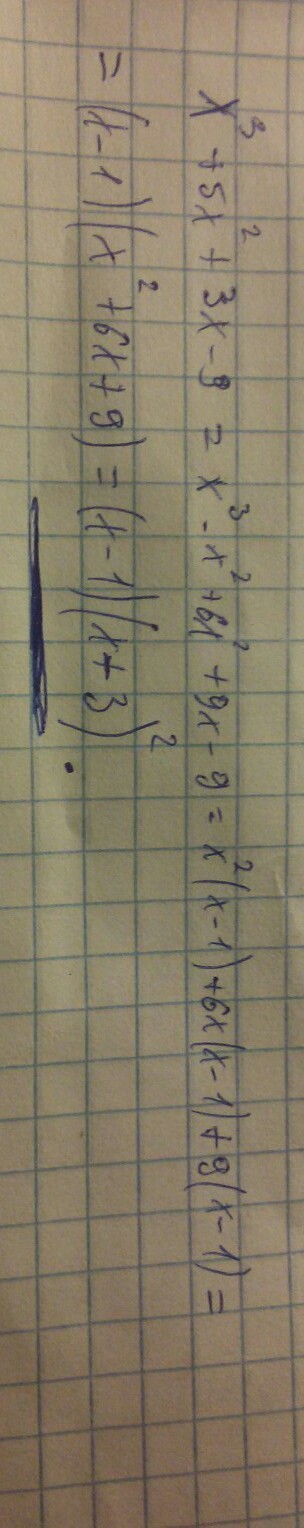 x³ + 5x² + 3x - 9 = x³ - x² + 6x² + 9x - 9 = x²(x-1) + 6x(x-1) + 9(x-1) =
= (x-1)(x² + 6x + 9) = (x-1)(x+3)².